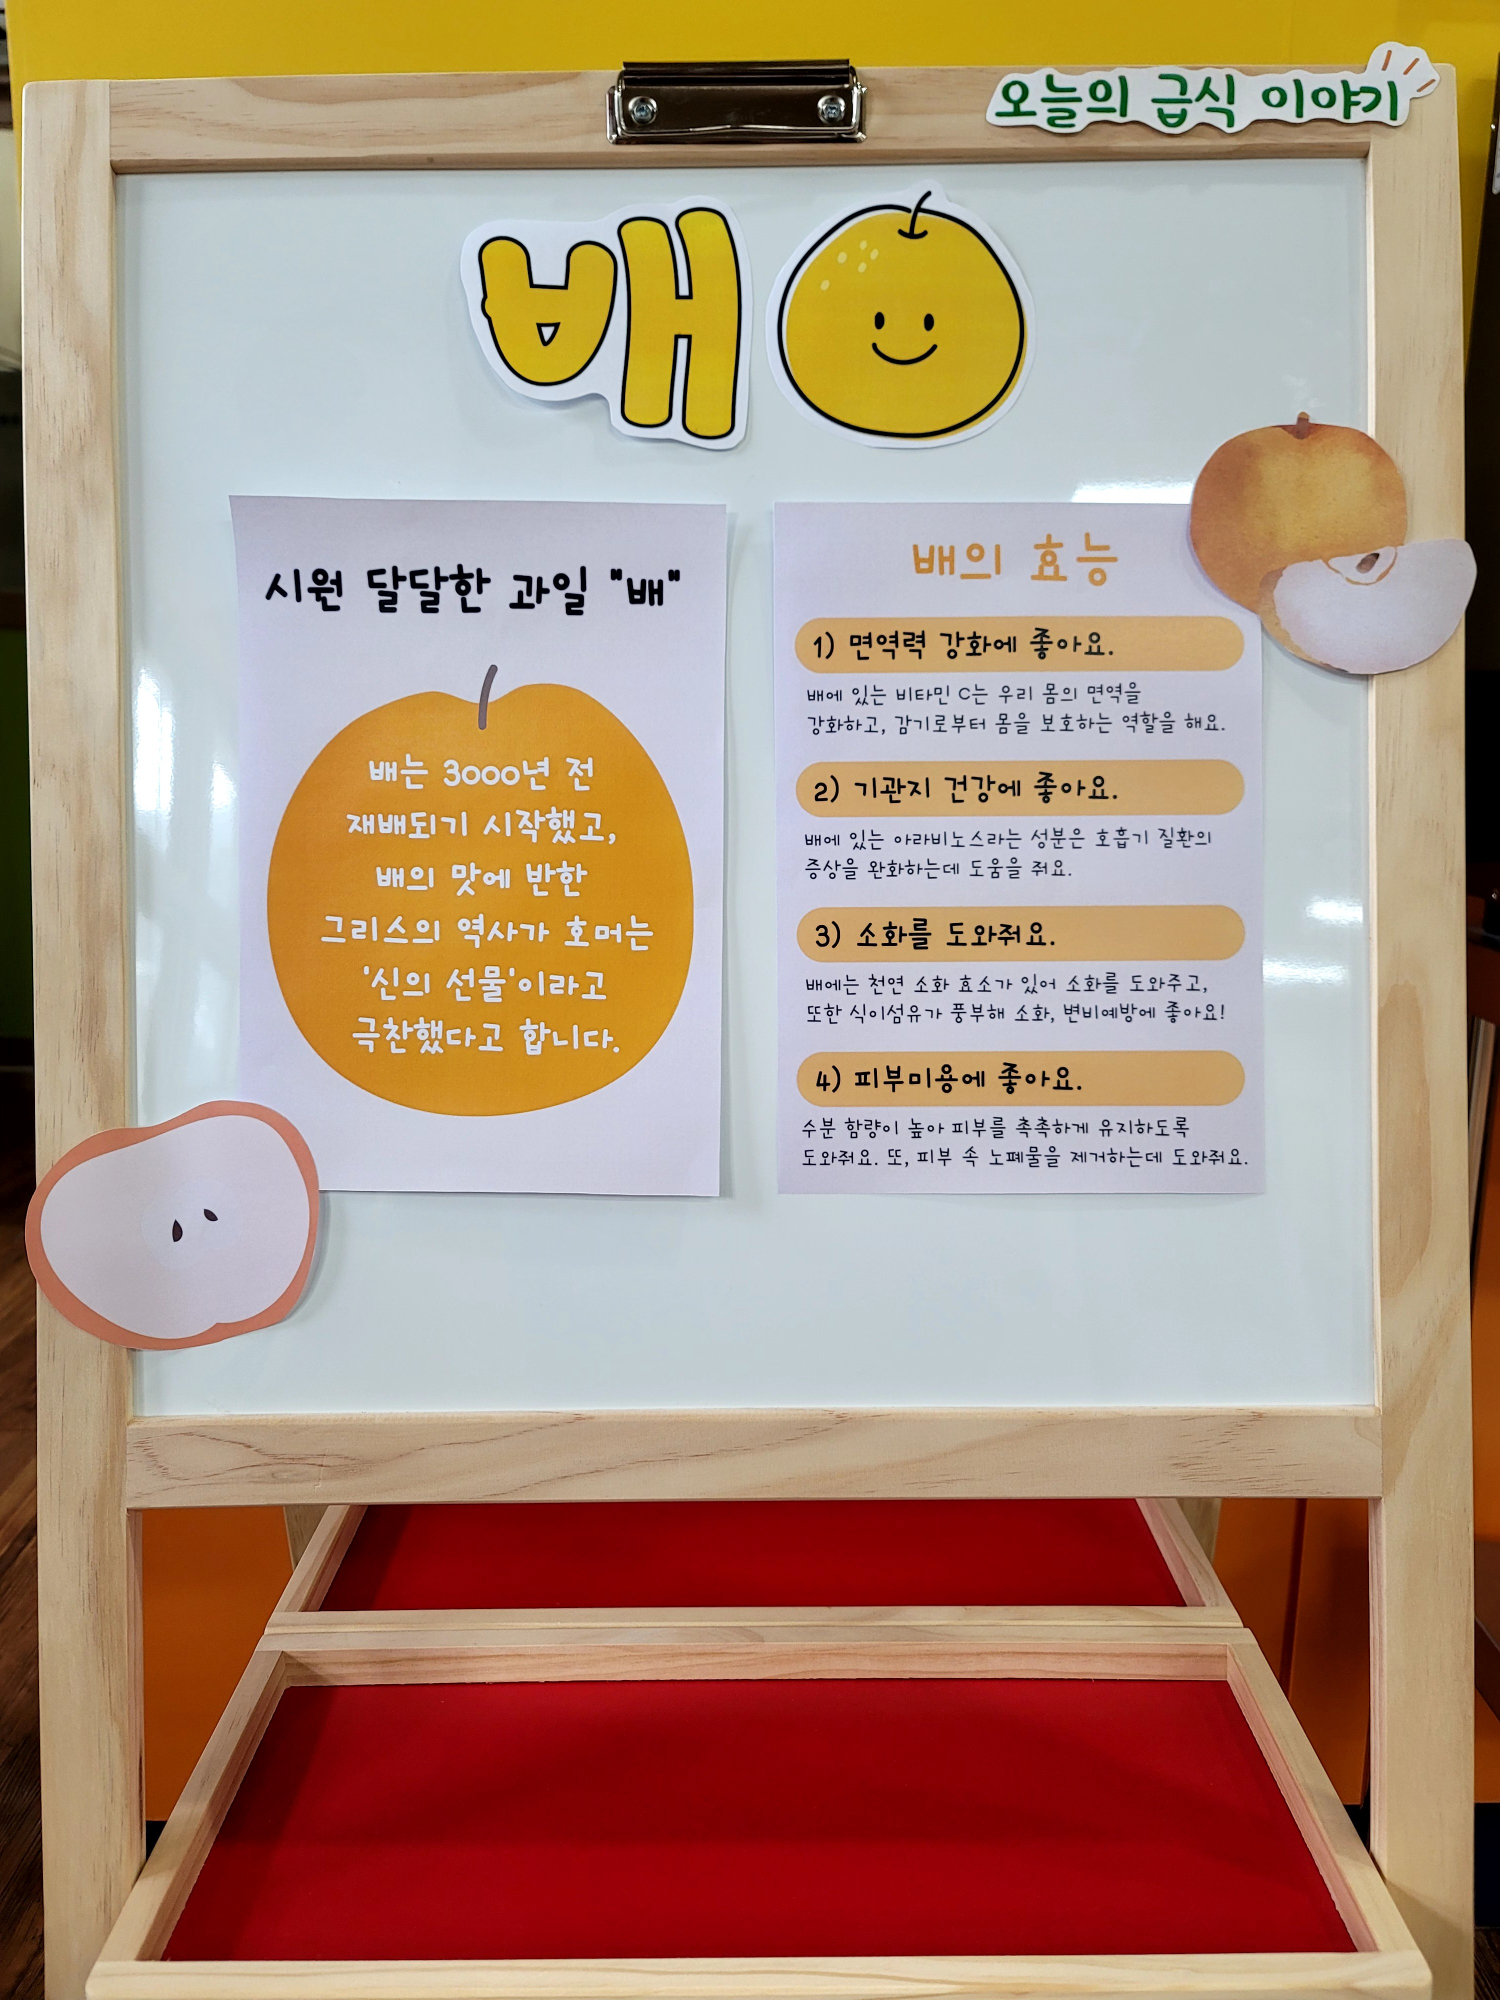 오늘의 급식 이야기
배
시원 달달한 과일 "배"
배는 3000년 전
재배되기 시작했고,
배의 맛에 반한
그리스의 역사가 호머는
'신의 선물'이라고
극찬했다고 합니다.
배의 효능
1) 면역력 강화에 좋아요.
배에 있는 비타민 C는 우리 몸의 면역을
강화하고, 감기로부터 몸을 보호하는 역할을 해요.
2) 기관지 건강에 좋아요.
배에 있는 아라비노스라는 성분은 호흡기 질환의
증상을 완화하는데 도움을 줘요.
3) 소화를 도와줘요.
배에는 천연 소화 효소가 있어 소화를 도와주고,
또한 식이섬유가 풍부해 소화, 변비예방에 좋아요!
4) 피부미용에 좋아요.
수분 함량이 높아 피부를 촉촉하게 유지하도록
도와줘요. 또, 피부 속 노폐물을 제거하는데 도와줘요.